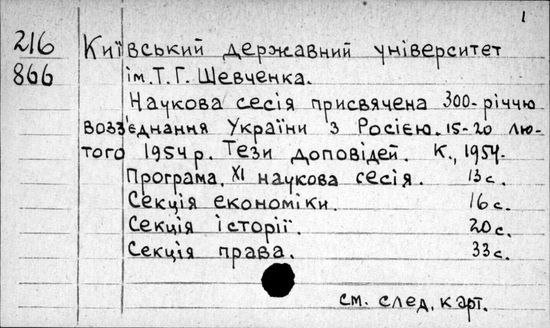 1
216 Київський державний університет
866 ім. Т. Г. Шевченка.
Наукова сесія присвячена 300-річчю
возз'єднання України з Росією. 15-20 лю-
того 1954 р. Тези доповідей. К., 1954.
Програма. XI наукова сесія. 13 с.
Секція економіки. 16 с.
Секція історії. 20 с.
Секція права. 33 с.
см. след. карт.